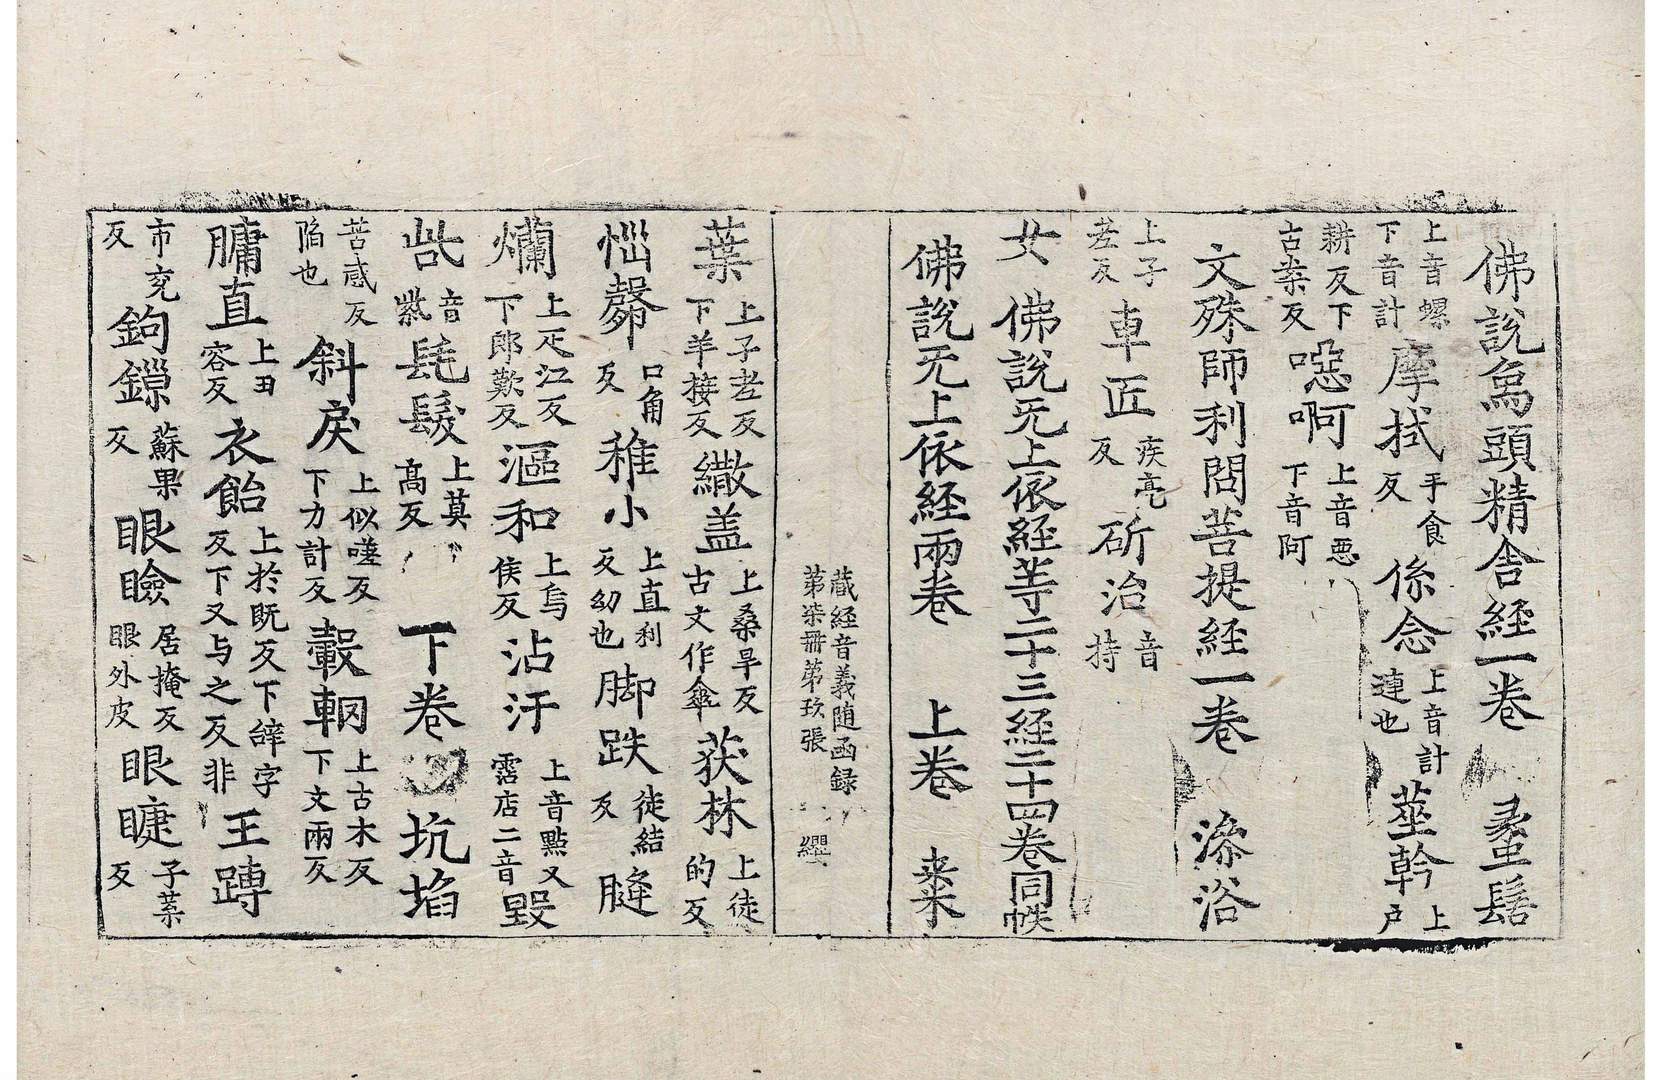 佛說象頭精舍經一卷 蠡髻
上音螺下音計摩拭手食反係念上音計連也莖幹上戶
耕反下古案反噁啊上音惡下音阿
文殊師利問菩提經一卷 澡浴
上子老反車匠疾亮反斫治音持
女 佛說无上依經等二十三經二十四卷同帙
佛說无上依經兩卷 上卷 棗
藏經音義随函録
第柒冊第玖張 纓
葉上子老反下羊接反繖盖上桑旱反古文作傘荻林上徒的反
惱㲉口角反稚小上直利反幼也脚跌徒結反膖
爛上疋江反下郎歎反漚和上烏侯反沾汙上音點又霑店二音毀
呰音紫髦髮上莫高反下卷 坑埳
苦感反陷也斜戾上似嗟反下力計反轂輞上古木反下文兩反
𦟛直上丑容反衣飴上於既反下辝字反下又与之反非王䏝
市兖反鉤鏁蘇果反眼瞼居掩反眼外皮眼睫子葉反